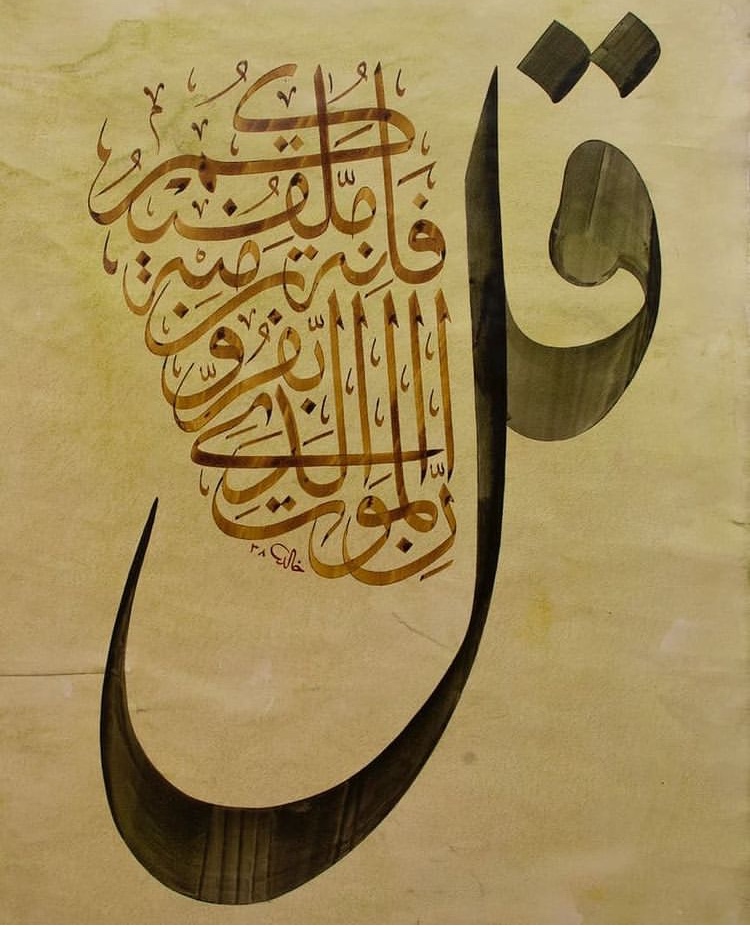 قل
إن الموت الذي
تفرون
منه فإنه
ملقيكم
خالد